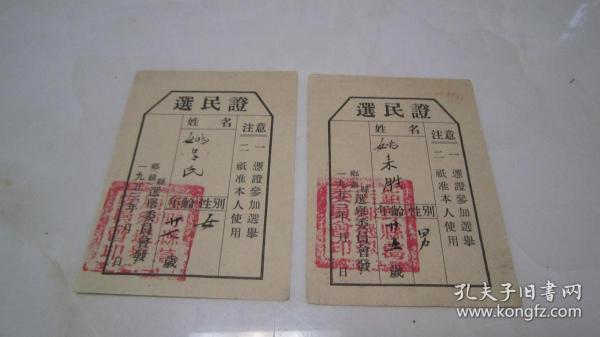 選民證
注意
一 憑證參加選舉
二 祇准本人使用
姓名
姚
民
性別
女
年齡
歲
縣
鄉鎮
選舉委員會發
一九五三年
月
日
選民證
注意
一 憑證參加選舉
二 祇准本人使用
姓名
姚來勝
性別
男
年齡
廿五
歲
縣
鄉鎮
選舉委員會發
一九五
年
月
日
孔夫子旧书网
www.kongfz.com